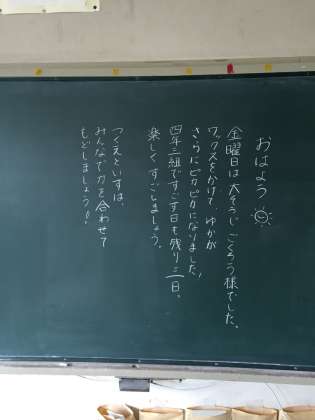 おはよう
金曜日は大そうじごくろう様でした。
ワックスをかけて、ゆかが
さらにピカピカになりました！
四年三組ですごす日も残り二日。
楽しくすごしましょう。
つくえといすは、
みんなで力を合わせて
もどしましょう！